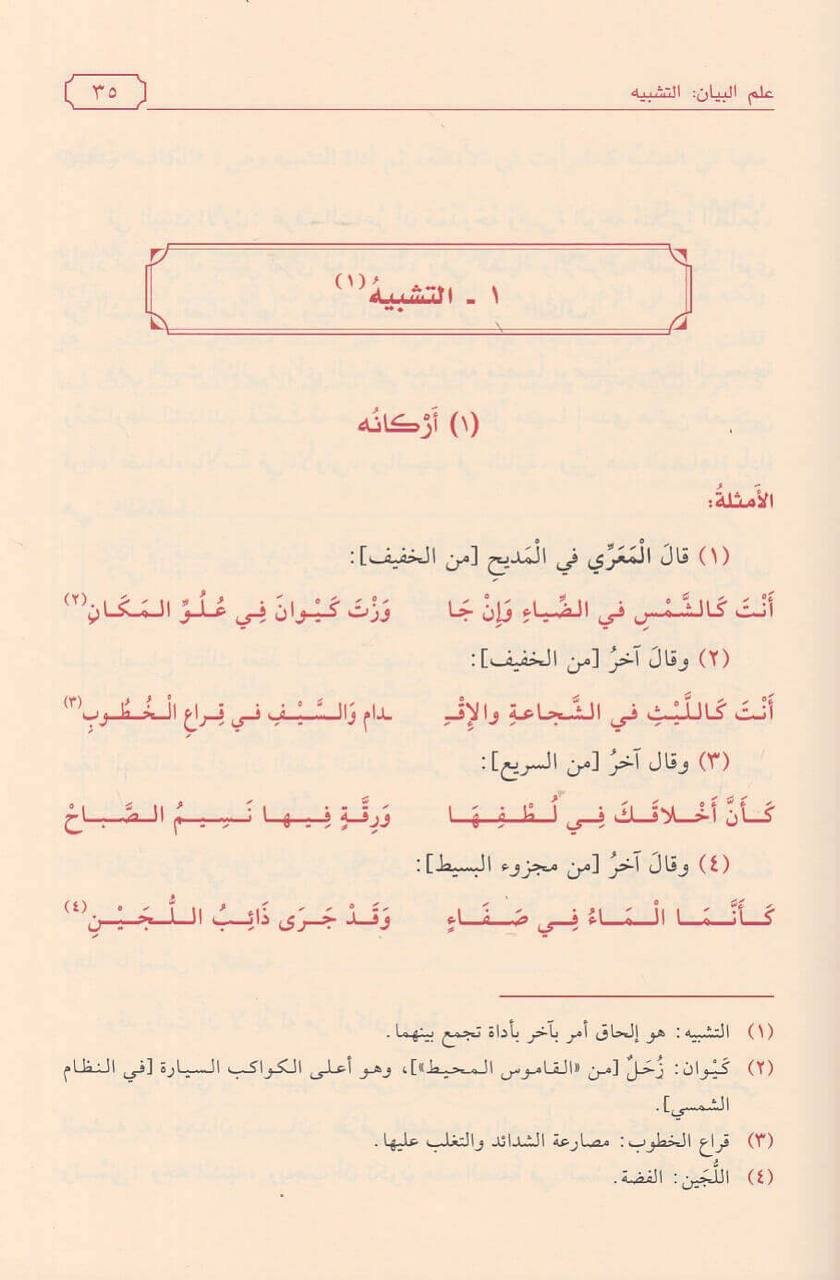 علم البيان: التشبيه ٣٥
١ - التشبيهُ(١)
(١) أَرْكانُه
الأَمثلةُ:
(١) قالَ الْمَعَرِّي في الْمَديحِ [من الخفيف]:
أَنْتَ كَالشَّمْسِ في الضِّياءِ وَإِنْ جَا وَزْتَ كَيْوانَ فِي عُلُوِّ المَكَانِ(٢)
(٢) وقالَ آخرُ [من الخفيف]:
أَنْتَ كَاللَّيْثِ في الشَّجاعةِ والإِقْـ ـدام وَالسَّيْفِ في قِراعِ الْخُطُوبِ(٣)
(٣) وقال آخرُ [من السريع]:
كَأَنَّ أَخْلاقَكَ فِي لُطْفِهَا وَرِقَّةٍ فِيهَا نَسِيمُ الصَّبَاحْ
(٤) وقالَ آخرُ [من مجزوء البسيط]:
كَأَنَّمَا الْمَاءُ فِي صَفَاءٍ وَقَدْ جَرَى ذَائِبُ اللُّجَيْنِ(٤)
(١) التشبيه: هو إلحاق أمر بآخر بأداة تجمع بينهما.
(٢) كَيْوان: زُحَلٌ [من «القاموس المحيط»]، وهو أعلى الكواكب السيارة [في النظام
الشمسي].
(٣) قراع الخطوب: مصارعة الشدائد والتغلب عليها.
(٤) اللُّجَين: الفضة.